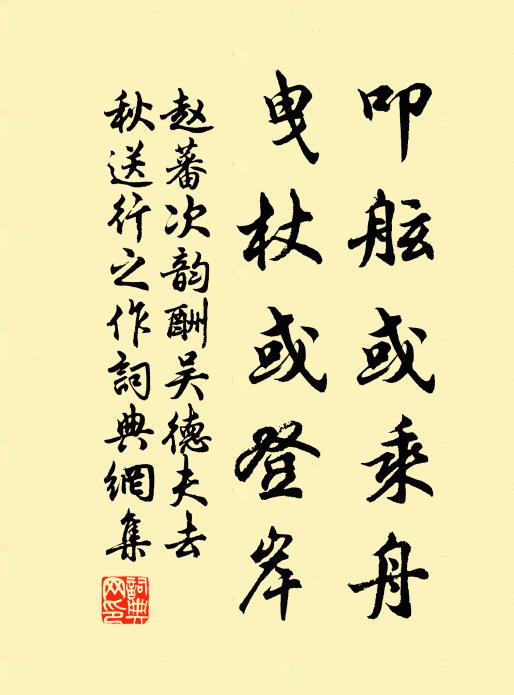 叩舷或乘舟
曳杖或登岸
赵蕃次韵酬吴德夫去
秋送行之作詞典網集
詞典網印